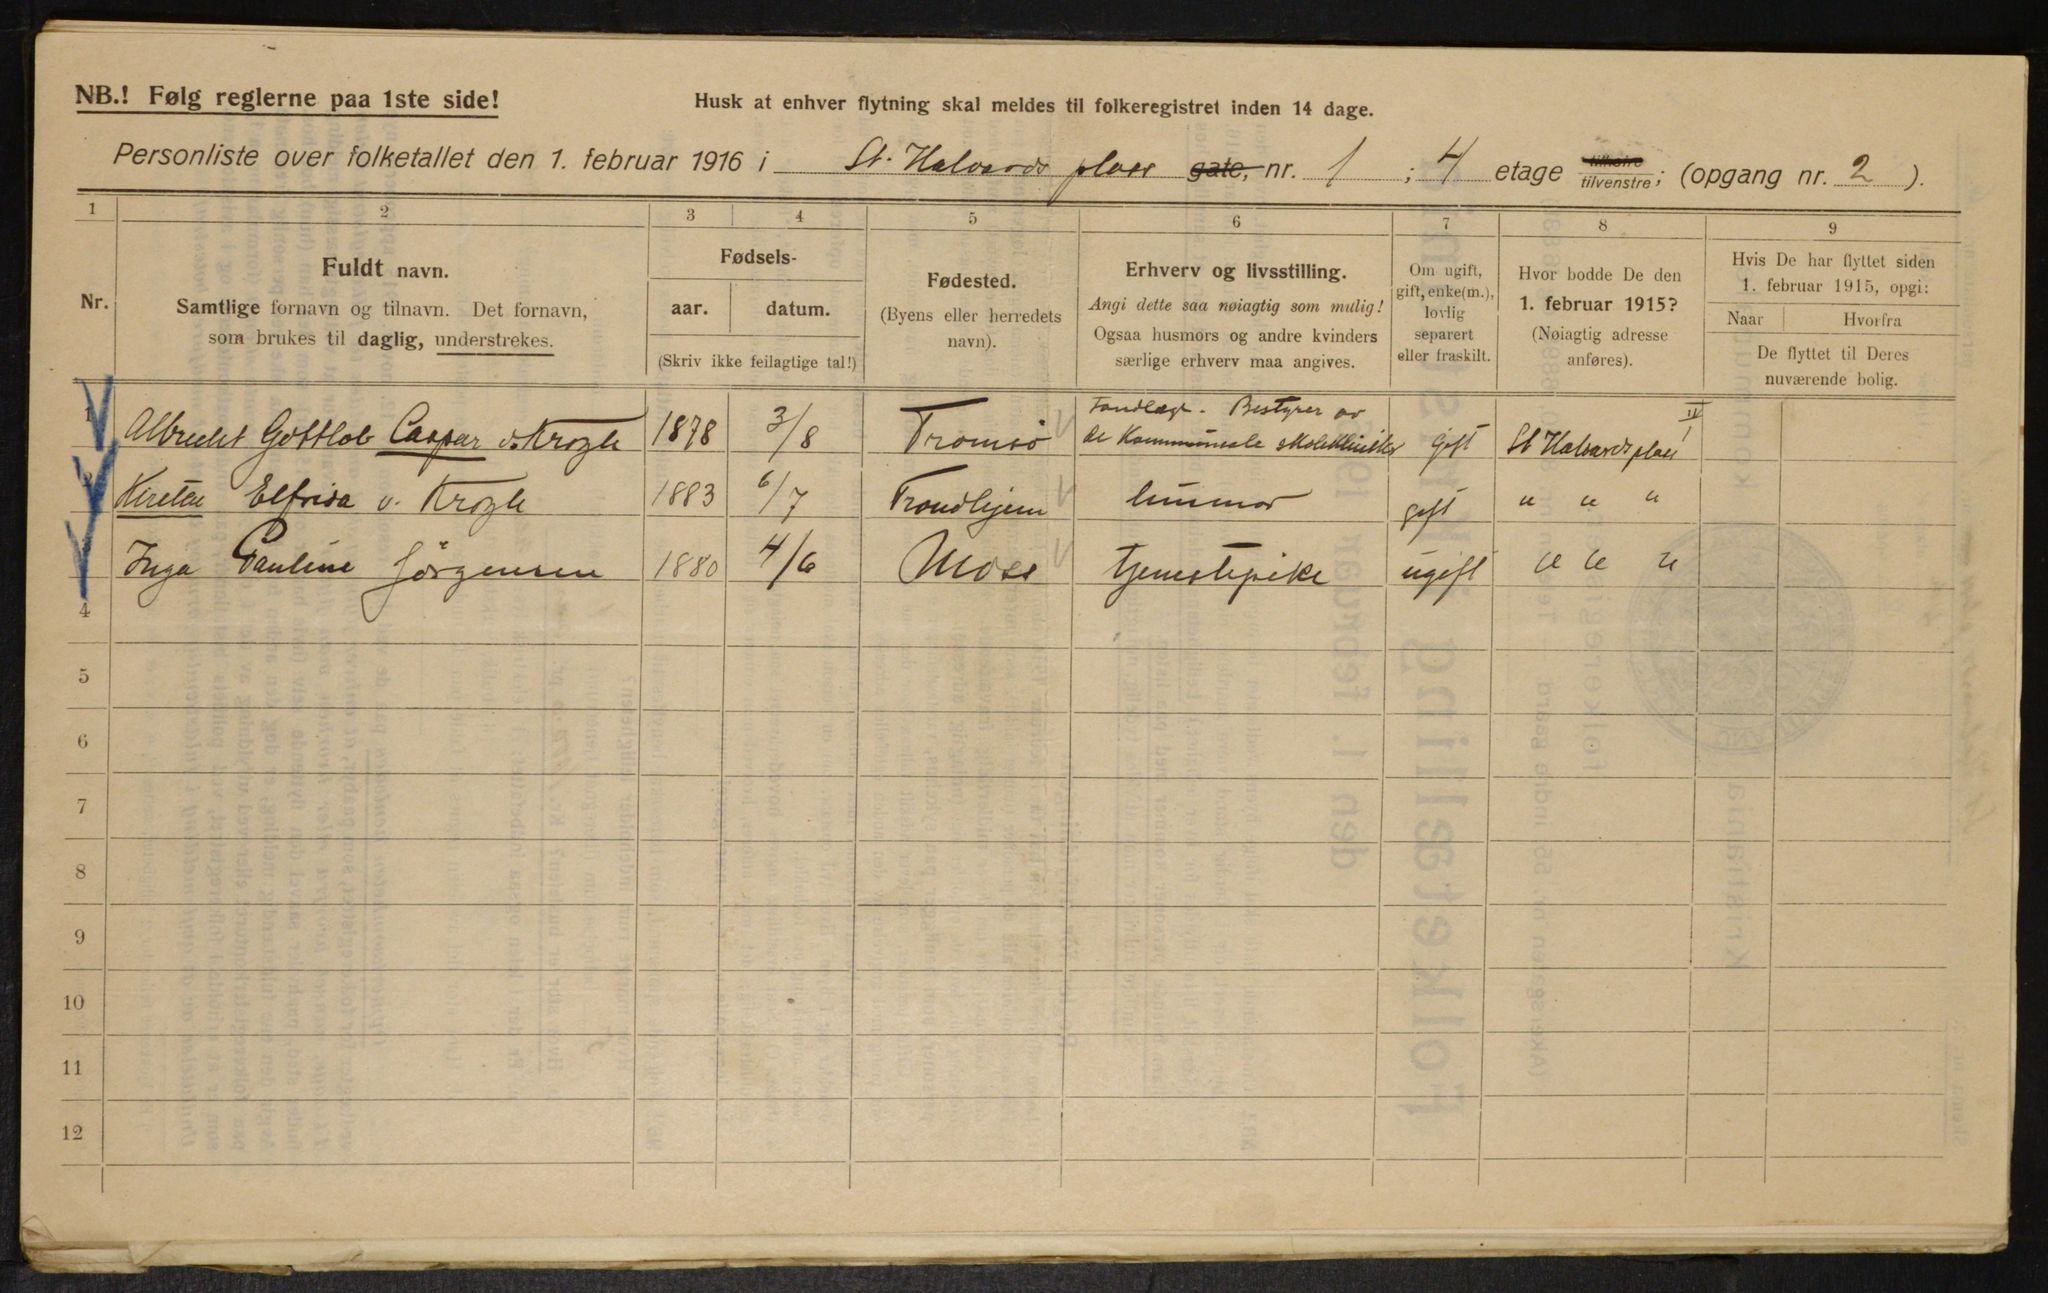 NB.! Følg reglerne paa 1ste side!
Husk at enhver flytning skal meldes til folkeregistret inden 14 dage.
Personliste over folketallet den 1. februar 1916 i St. Halvards plass gate, nr. 1; 4 etage tilhøire tilvenstre; (opgang nr. 2).
1 2 3 4 5 6 7 8 9
Nr.
Fuldt navn.
Samtlige fornavn og tilnavn. Det fornavn,
som brukes til daglig, understrekes.
Fødsels-
aar. datum.
(Skriv ikke feilagtige tal!)
Fødested.
(Byens eller herredets
navn).
Erhverv og livsstilling.
Angi dette saa nøiagtig som mulig!
Ogsaa husmors og andre kvinders
særlige erhverv maa angives.
Om ugift,
gift, enke(m.),
lovlig
separert
eller fraskilt.
Hvor bodde De den
1. februar 1915?
(Nøiagtig adresse
anføres).
Hvis De har flyttet siden
1. februar 1915, opgi:
Naar Hvorfra
De flyttet til Deres
nuværende bolig.
1 Albrecht Gottlob Caspar v. Krogh 1878 3/8 Tromsö Tandlæge. Bestyrer av de Kommunale skoleklinikker Gift St Halvards plass 1 IV
2 Kirsten Elfrida v. Krogh 1883 6/7 Trondhjem husmor gift " " "
Inga Pauline Jörgensen 1880 4/6 Moss tjenestepike ugift " " "
4
5
6
7
8
9
10
11
12